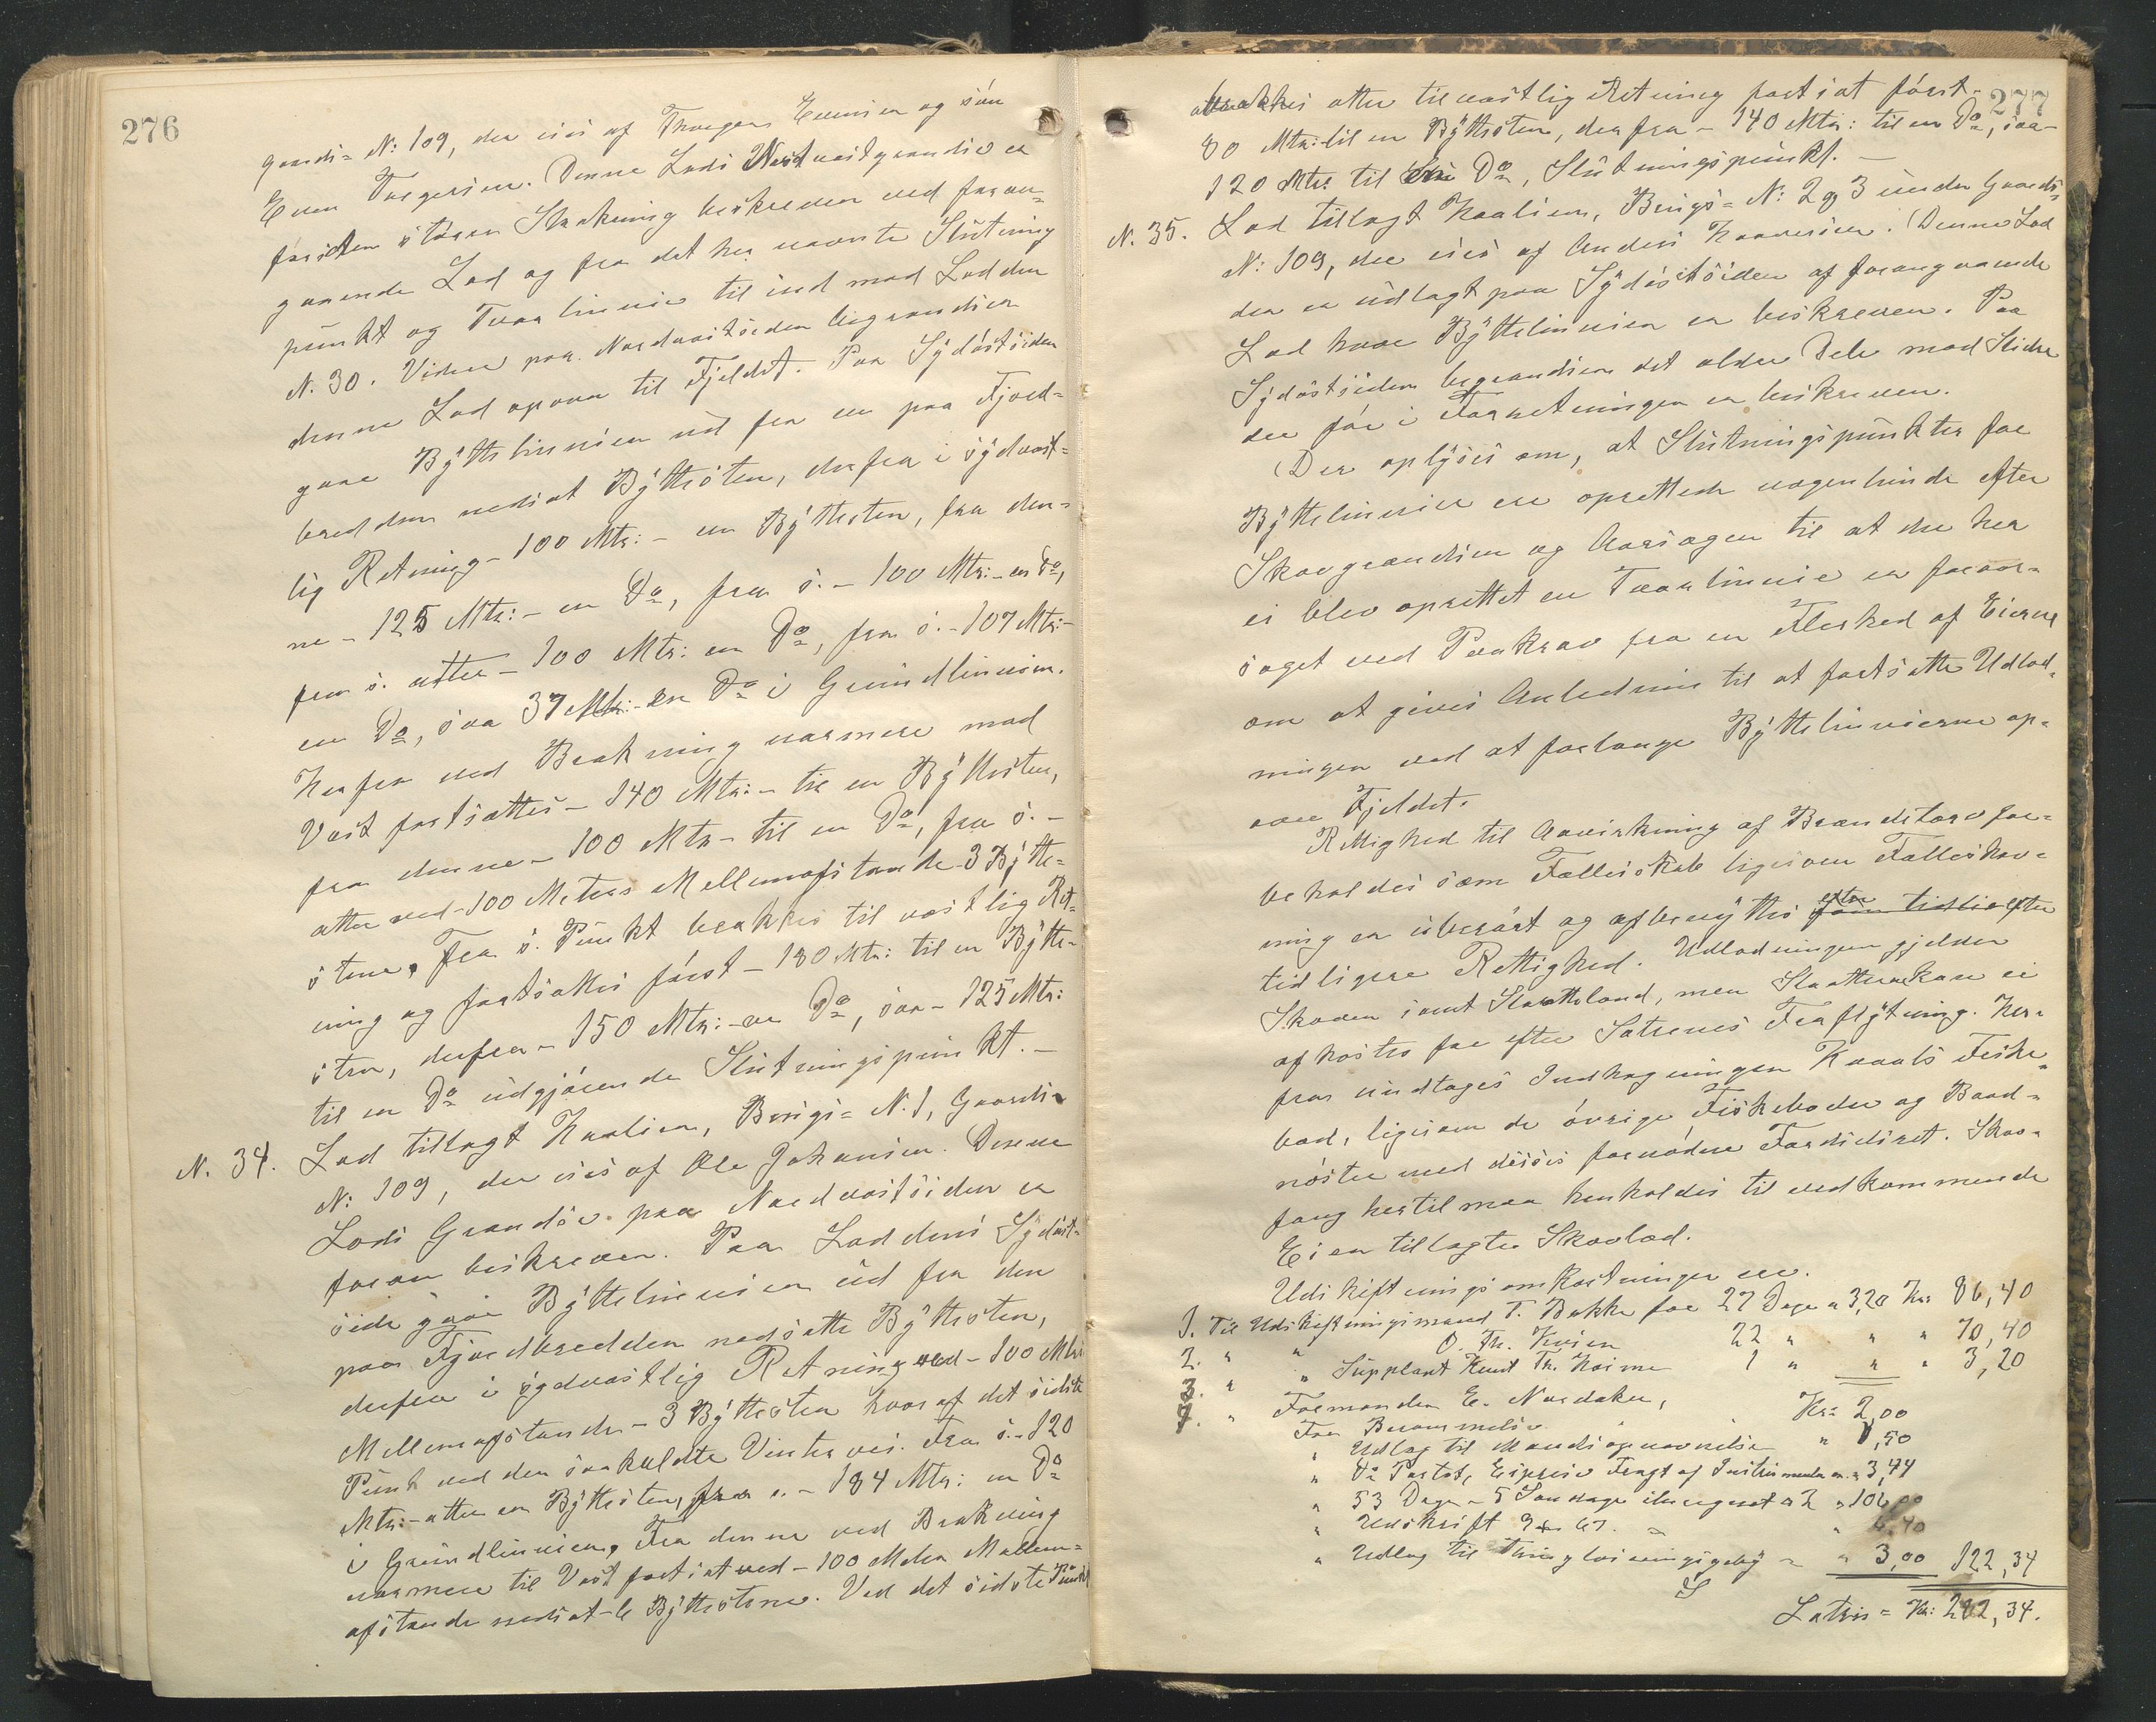 276
gaards= N: 109, der eies af Thorger Evensen og søn
Even Torgersen. Denne Lods Nordvestgrændse er
største Strækning beskreven ved foran=
gaaende Lod og fra det her nævnte Slutning
punkt og Tværlinnie til ind mod Lodden
N. 30. Videre paa Nordvestsiden begrændser
denne Lod opover til Fjeldet. Paa Sydøstsiden
gaar Byttelinnien ud fra en paa Fjord=
bredden nedsat Byttesten, derfra i sydvest=
lig Retning - 100 Mtr: - en Byttesten, fra den=
ne - 125 Mtr: - en Do, fra s. - 100 Mtr: - en Do,
fra s. atter - 100 Mtr: en Do, fra s. - 107 Mtr: -
en Do, saa 37 Mtr: - en Do i Grundlinnien.
Herfra ved Brækning nærmere mod
Vest fortsættes - 140 Mtr: - til en Byttesten,
fra denne - 100 Mtr - til en Do, fra s. -
atter ved - 100 Meters Mellemafstande - 3 Bytte=
stene, fra s. Punkt brækkes til vestlig Ret=
ning og fortsættes først - 180 Mtr: til en Bytte=
sten, derfra - 150 Mtr: - en Do, saa - 125 Mtr:
til en Do udgjørende Slutningspunkt. -
N. 34. Lod tillagt Haalien, Brugs= N. 1, Gaards=
N: 109, der eies af Ole Johansen. Denne
Lods Grændse paa Nordvestsiden er
foran beskreven. Paa Loddens Sydøst=
side gaar Byttelinnien ud fra den
paa Fjordbredden nedsatte Byttesten,
derfra i sydvestlig Retning ved - 100 Mtr
Mellemafstande - 3 Byttesten hvoraf det sidste
Punk ved den saakaldte Vintervei. Fra s. - 120
Mtr: - atter en Byttesten, fra s. - 184 Mtr: en Do
i Grundlinnien. Fra denne ved Brækning
nærmere til Vest fortsat ved - 100 Meter Mellem=
afstande nedsat - 6 Byttestene. Ved det sidste Punkt
277
brækkes atter til vestlig Retning fortsat først -
80 Mtr: til en Byttesten, der fra - 140 Mtr: til en Do, saa -
120 Mtr: til en Do, Slutningspunkt. -
N. 35. Lod tillagt Haalien, Brugs= N: 2 og 3 under Gaards=
N: 109, der eies af Anders Haaversen. (Denne Lod
der er udlagt paa Sydøstsiden af forangaaende
Lod hvor Byttelinnien er beskreven. Paa
Sydøstsiden begrændser det ældre Dele mod Slidre
der før i Forretningen er beskreven.
(Der oplyses om, at Slutningspunkter for
Byttelinnier ere oprettede nogenlunde efter
Skovgrændsen og Aarsagen til at der her
ei blev oprettet en Tværlinnie er foraar=
saget ved Paakrav fra en Flerhed af Eierne
om at gives Anledning til at fortsætte Udlod=
ningen ved at forlænge Byttelinnierne op=
over Fjeldet.
Rettighed til Aavirkning af Brændetorv for=
beholdes som Fællesskab ligesom Fælleshav=
ning er uberørt og afbenyttes efter som tidlig efter
tidligere Rettighed. Udlodningen gjelder
Skoven samt Slaatteland, men Slaatten kan ei
afhøstes før efter Sætrenes Fraflytning. Her=
fra undtages Indhegningen Kvaals Feske=
bod, ligesom de øvrige Fiskeboder og Baad=
nøster med disses fornødne Færdselsret. Skov=
fang hertil maa henholdes til vedkommende
Eier tillagte Skovlod.
Udskiftningsomkostninger ere.
1. Til Udskiftningsmand T. Bakke for 27 Dage a 3,20 Kr: 86,40
2. " " O. Th. Kvien 22 " " " 70,40
3. " " Supplant Knut Th. Hoime 1 " " " 3,20
4. " Formanden E. Nordaker,
For Berammelse Kr= 2,00
" Udlag til Mandsopnævnelse " 1,50
" Do Portot, Expres Fragt af Instrumenter m. " 3,44
" 53 Dage - 5 Søndage iberegnet a 2 " 106,00
" Udskrift
" Udlag til Thinglæsningsgeby " " 3,00 122,34
Latris = Kr: 282,34.